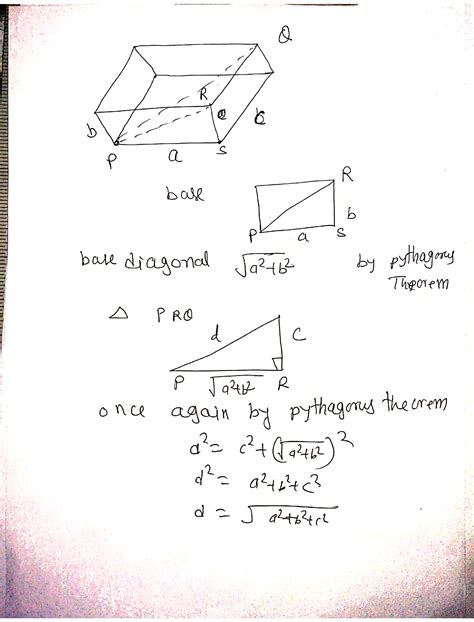 Q
R
b
P
a
S
base
R
b
P
a
S
base diagonal √a²+b² by pythagorus
Theorem
△ PRQ
d
C
P
√a²+b²
R
once again by pythagorus theorem
d² = c² + (√a²+b²)²
d² = a²+b²+c²
d = √a²+b²+c²